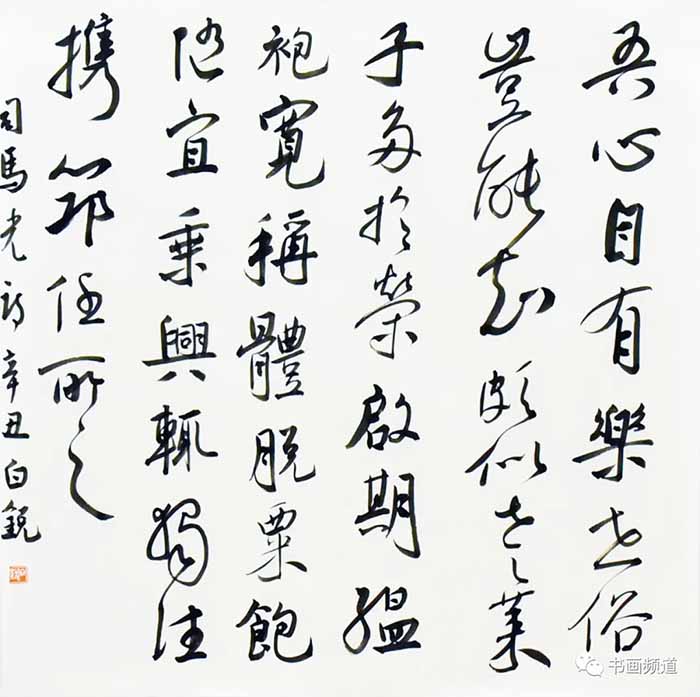 吾心自有樂世俗
豈能知頗似老萊
子多於榮啟期縕
袍寬稱體脫粟飽
隨宜乘興輒獨往
携筇任所之
司馬光詩辛丑白銳
书画频道